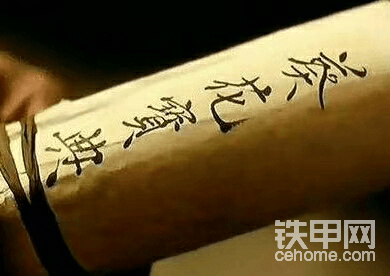 葵花寶典
铁甲网
cehome.com